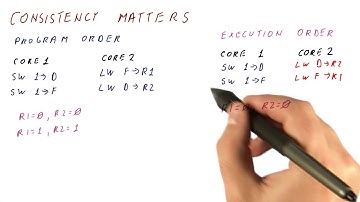 CONSISTENCY MATTERS
PROGRAM ORDER
CORE 1 CORE 2
SW 1→D LW F→R1
SW 1→F LW D→R2
R1=0, R2=0
R1=1, R2=1
EXECUTION ORDER
CORE 1 CORE 2
SW 1→D LW D→R2
SW 1→F LW F→R1
R2=0